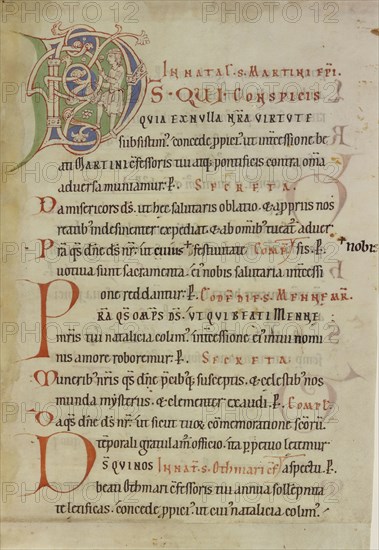 IN NATAL. S. MARTINI EPI.
DS. QUI CONSPICIS
QVIA EX NVLLA NRA VIRTVTE
subsistim'. concede ppici'. ut int'cessione be
ati MARTINI c'fessoris tui atq; pontificis contra oma
aduersa muniamur. p. SECRETA.
Da misericors ds. ut hec salutaris oblatio. & a ppriis nos
reatib' indesinenter expediat. & ab omib' tueat' aduer
Pra qs dne ds nr. ut cuius festiuitate COMPL' sis. p. nobis
uotiua sunt sacramenta. ei' nobis salutaria int'cessi
one reddantur. p. EOD' DIE S. MENNE MR.
PRA QS OMPS DS. VT QVI BEATI MENNE
mris tui natalicia colim'. int'cessione ei' in tui nomi
nis amore roboremur. p. SECRETA.
Munerib' nris qs dne pcib'q; susceptis. & celestib' nos
munda mysteriis. & clementer exaudi. p. COMPL'.
Da qs dne ds nr. ut sicut tua c'memoratione scoru'
te'porali gratulam' officio. ita ppetuo letemur
DS QVI NOS IN NAT. S. Othmari c'f. aspectu. p.
beati Othmari c'fessoris tui annua sollepnita
te letificas. concede ppici'. ut cui' natalicia colim'.